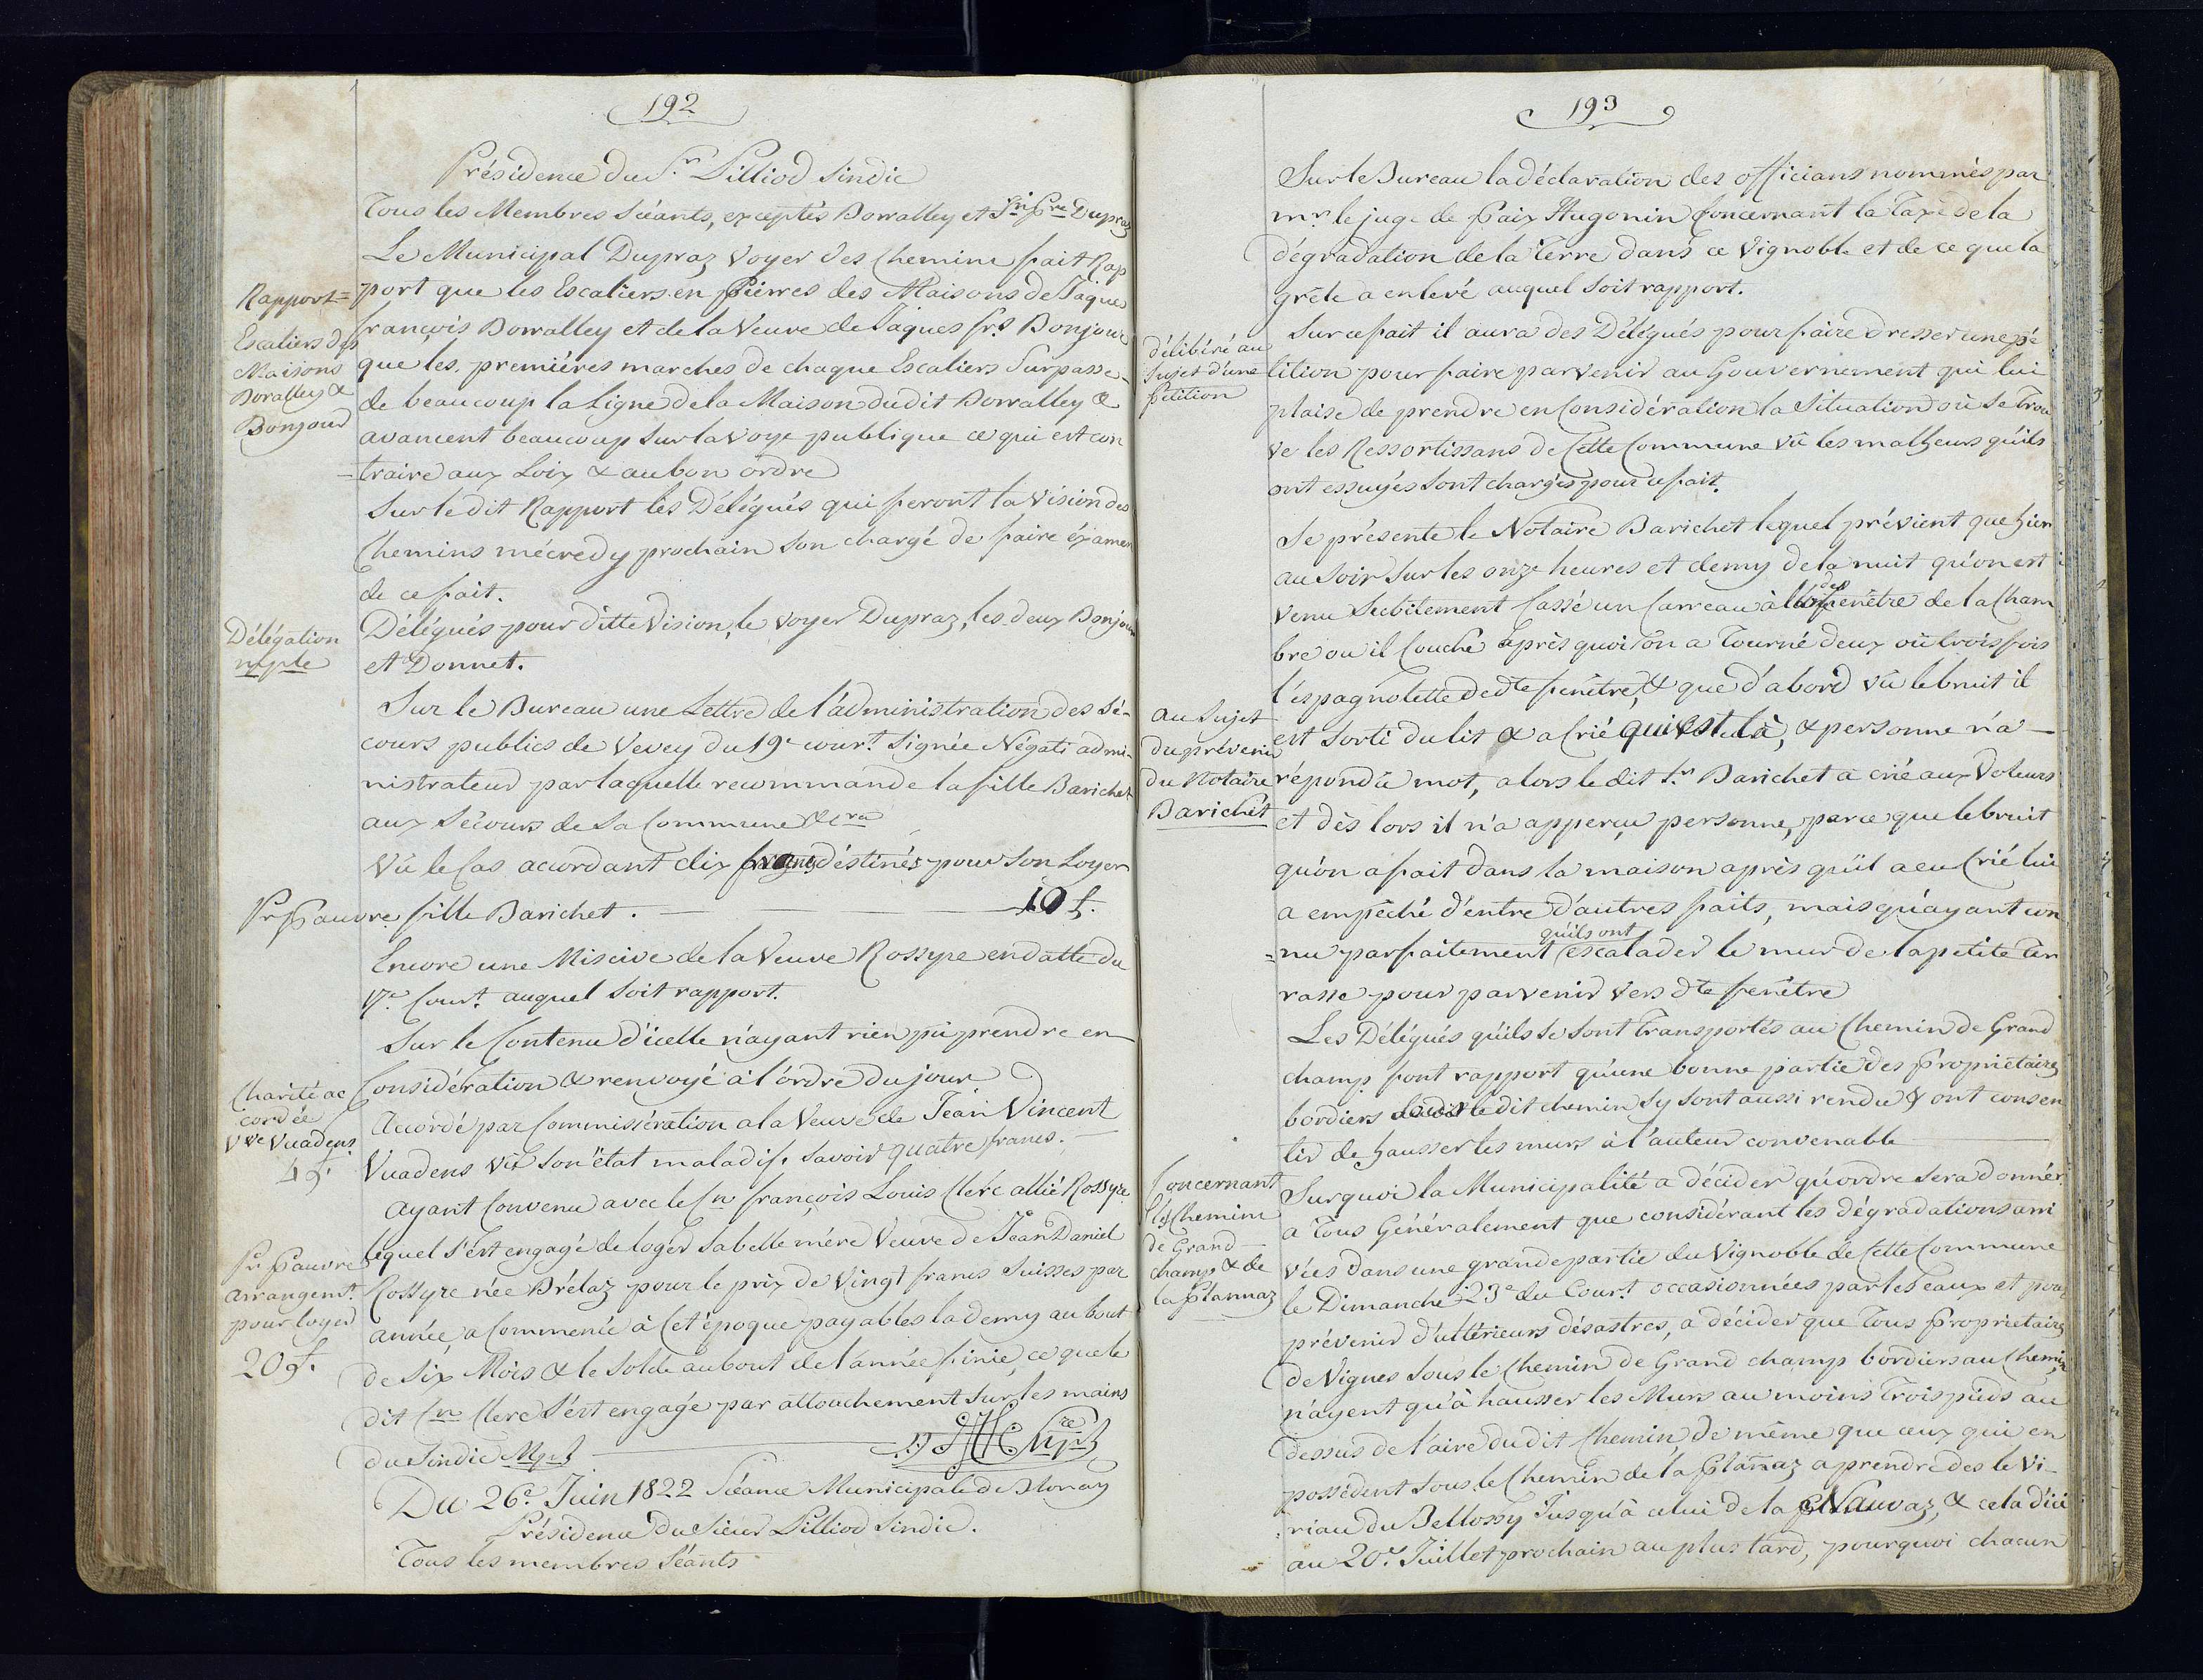 192
Présidence du Sr. Pilliod Sindic
Tous les Membres Séants, exceptés Borralley et Jn Pre Dupraz
Le Municipal Dupraz Voyer des Chemins fait Rap
Rapport=
port que les Escaliers en pierres des Maisons de Jaques
Escaliers des
françois Borralley et de la Veuve de Jaques frs Bonjour
Maisons
que les premiéres marches de chaque Escaliers Surpasse-
Boralley &
de beaucoup la Ligne de la Maison dudit Borralley &
Bonjour
avancent beaucoup sur la voye publique ce qui est con
=traire aux Loix & au bon ordre
Sur le dit Rapport les Délégués qui feront la Vision des
Chemins mécredy prochain son chargé de faire éxamen
de ce fait.
Délégation
Délégués pour ditte Vision, le voyer Dupraz, les deux Bonjour
mple
et Donnet.
Sur le Bureau une Lettre de l'administration des Sé-
cours publics de Vevey du 19e court. Signée Négati admi-
nistrateur par laquelle recommande la fille Barichet
aux Sécours de Sa Commune &cra
Vû le Cas acordant dix francs déstinés pour Son Loyer
Pr Pauvre fille Barichet. — 10 f.
Encore une Miscive de la Veuve Rossyre en datte du
17e Court. auquel Soit rapport.
Sur le Contenu d'icelle n'ayant rien pû prendre en
Charité ac
Considération & renvoyé à l'ordre du jour.
cordée
Acordé par Commisération a la Veuve de Jean Vincent
Vve Vuadens
Vuadens vû son état maladif, savoir quatre francs.
4 f.
Ayant Convenu avec le Sr françois Louis Clerc allié Rossyre
Pr Pauvre
lequel S'est engagé de loger Sa belle mére Veuve de Jean Daniel
arrangemt.
Rossyre née Brélaz pour le prix de Vingt francs Suisses par
pour loyer
année, a Commencée à Cet époque payables la demy au bout
20 f.
de Six Mois & le Solde au bout de l'année finie, ce que le
dit Sr Clerc S'est engagé par attouchement sur les mains
du Sindic
Du 26e. Juin 1822 Séance Municipale de Blonay
Présidence du Sieur Pilliod Sindic.
Tous les membres Séants
193
Sur le Bureau la déclaration des officians nommés par
mr. le juge de Paix Hugonin Concernant la Taxe de la
dégradation de la Terre dans ce Vignoble et de ce que la
grêle a enlevé auquel Soit rapport.
délibéré au
Sur ce fait il aura des Délégués pour faire dresser une pé
Sujet d'une
tition pour faire parvenir au Gouvernement qui lui
Pétition
plaise de prendre en Considération la Situation où Se trou
ve les Ressortissans de Cette Commune vû les malheurs qu'ils
ont essuyés Sont chargés pour ce fait.
Se présente le Notaire Barichet lequel prévient que hier
au Soir Sur les onze heures et demy de la nuit qu'on est
venu Subitement Cassé un Carreau à fenêtre de la Cham
bre ou il Couche après quoi on a Tourné deux oû trois fois
l'éspagnolette de dte fenêtre, & que d'abord vû le bruit il
au Sujet
est Sorti du lit & a Crié qui est là, & personne n'a —
du prévenir
répondû mot, alors le dit Sr. Barichet a crié aux Voleurs
du Notaire
Barichet
et dès lors il n'a apperçu personne, parce que le bruit
qu'on a fait dans la maison après qu'il a eu Crié lui
a empêché d'entre d'autres faits, mais qu'ayant con
=nu parfaitement qu'ils ont escalader le mur de la petite ter
rasse pour parvenir vers dte fenêtre
Les Délégués qu'ils Se Sont Transportés au Chemin de Grand
champ font rapport qu'une bonne partie des Propriétaires
bordiers le dit chemin Sy sont aussi rendu & ont consen
tir de hausser les murs à l'auteur convenable
Concernant
Surquoi la Municipalité a décider qu'ordre Sera donnér
les Chemins
a Tous Généralement que considérant les dégradations arri
de Grand
vées dans une grande partie du Vignoble de Cette Commune
champ & de
la Plannaz
le Dimanche 23e du Court. occasionnées par les eaux et pour
prévenir d'ultérieurs désastres, a décider que Tous Propriétaires
de Vignes Sous le Chemin de Grand champ bordiers au Chemin
n'ayent qu'à hausser les Murs au moins Trois pieds au
dessus de l'aire dudit Chemin, de même que ceux qui en
possèdent Sous le Chemin de la Plañaz a prendre des le Vi-
riau du Bellossy Jusqu'à celui de la Nauvaz, & cela d'ici
au 20e. Juillet prochain au plus tard, pourquoi chacun